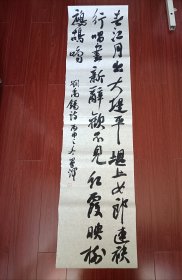 春江月出大堤平堤上女郎連袂
行唱盡新辭歡不見紅霞映樹
鷓鴣鳴
劉禹錫詩丙申之冬